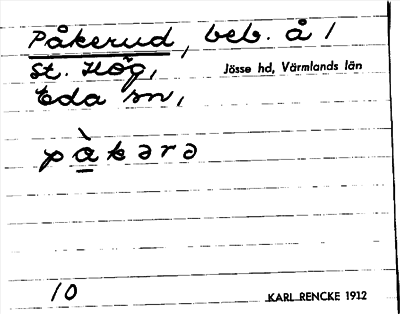 Påkerud, beb. å 1
St. Hög,
Jösse hd, Värmlands län
Eda sn,
pàkərə
10
KARL RENCKE 1912